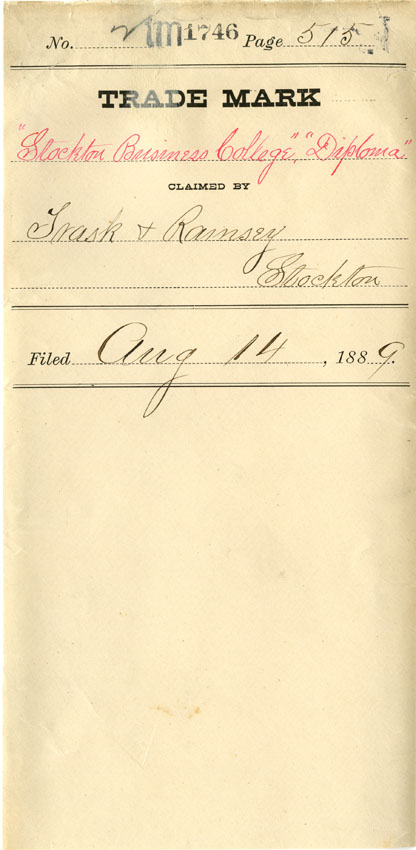 No. TM 1746 Page 515
TRADE MARK
"Stockton Business College", "Diploma"
CLAIMED BY
Trask & Ramsey
Stockton
Filed Aug 14, 1889.